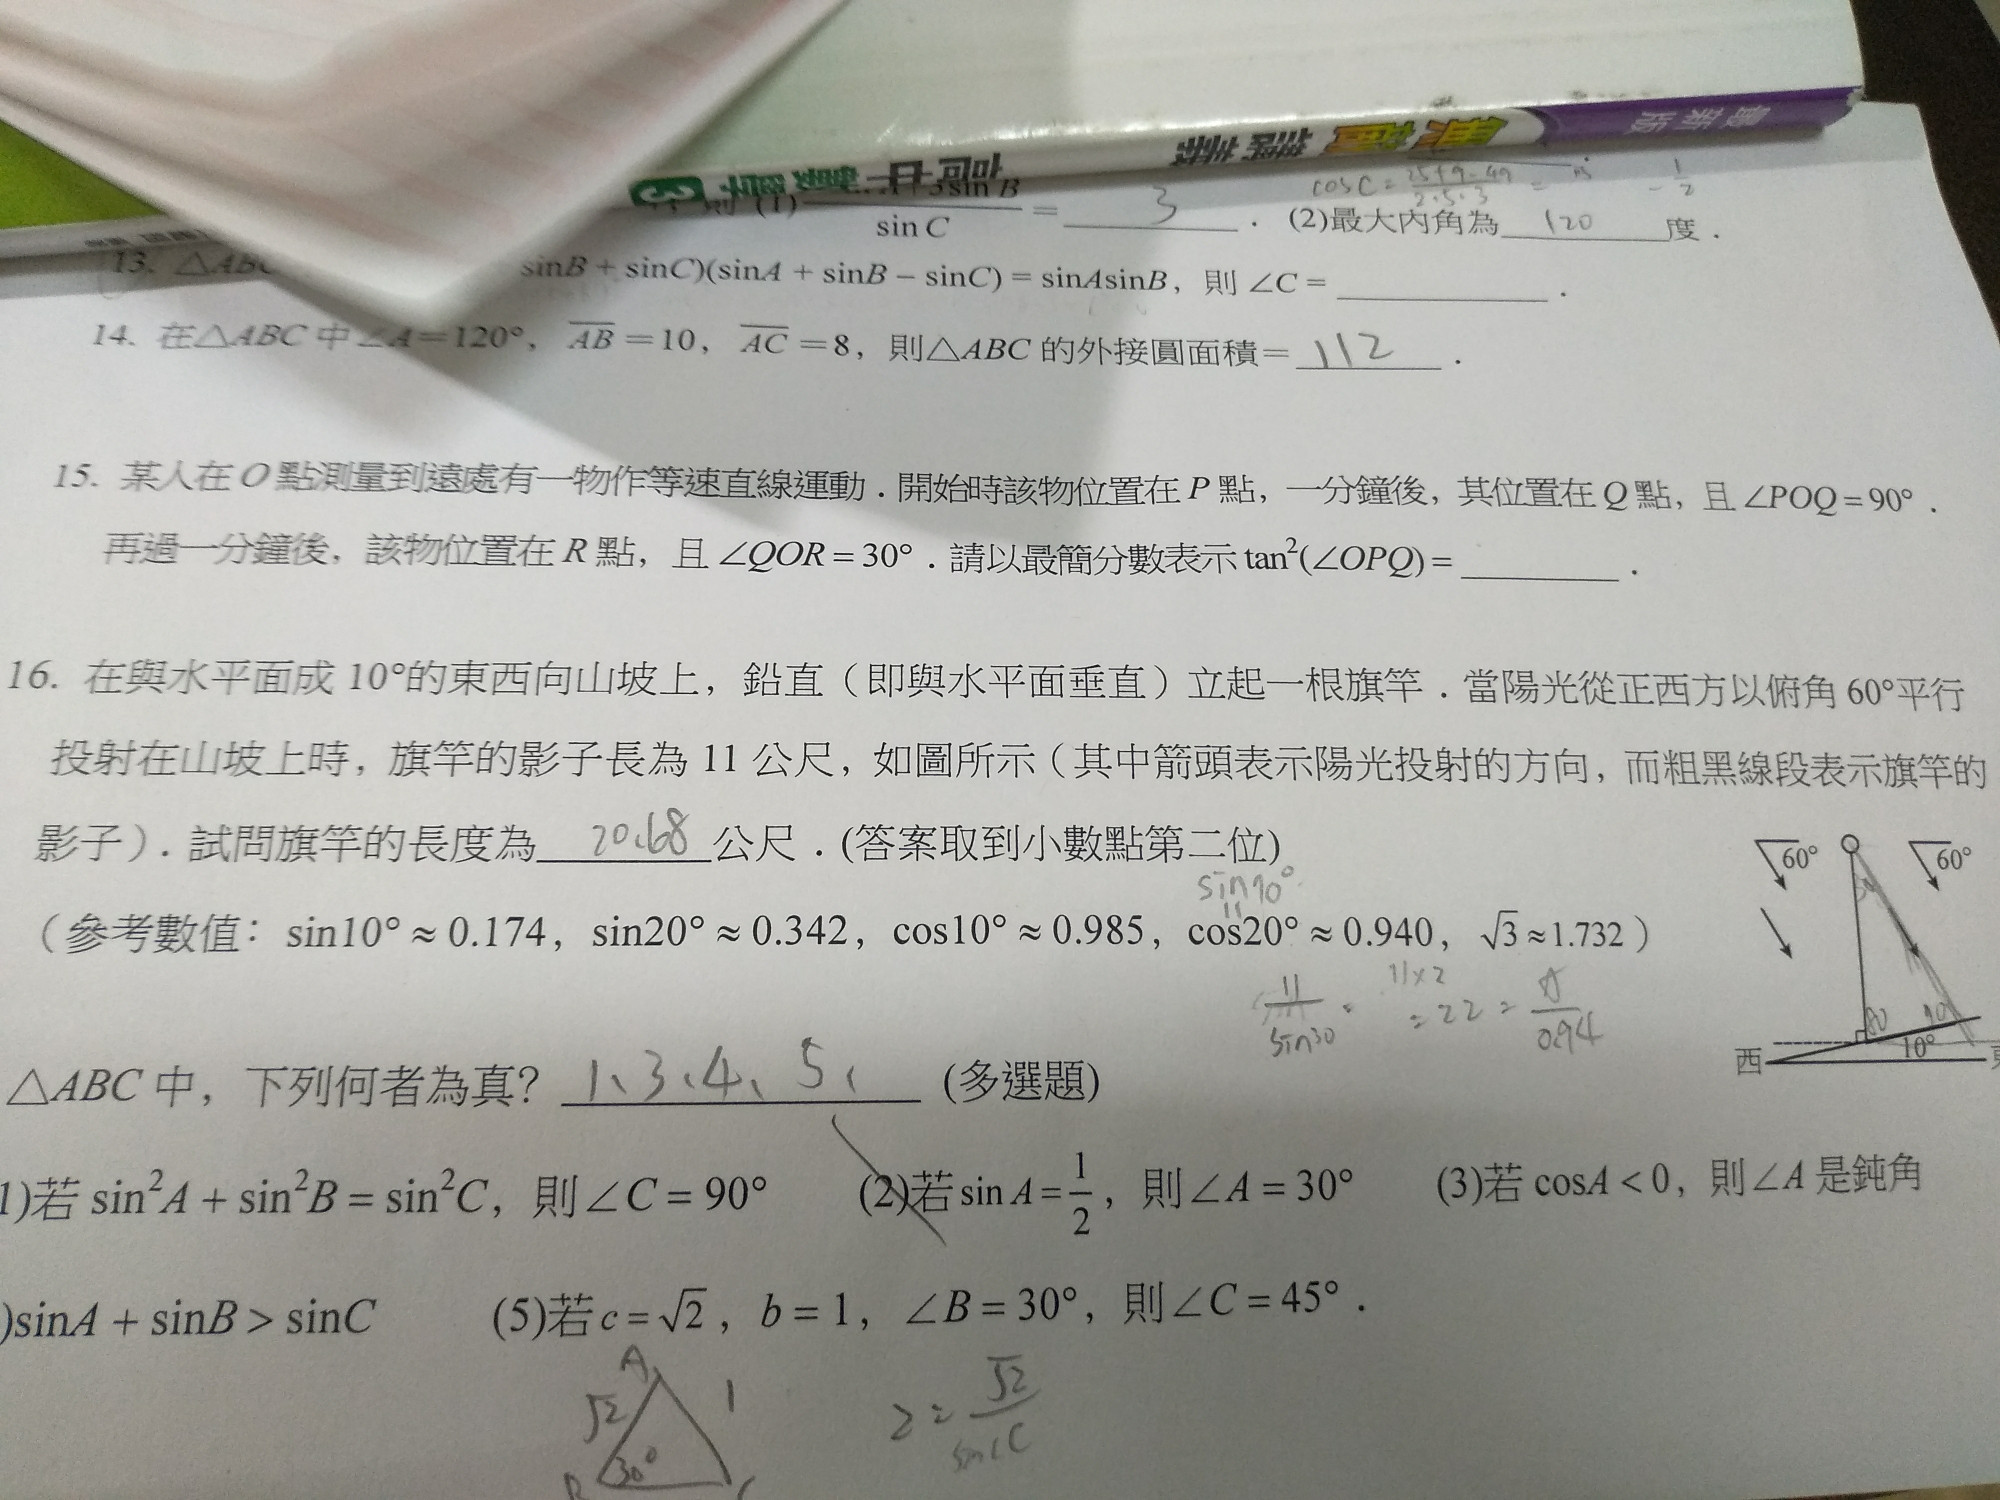 最新版
無敵 講義
高中數學 3
cosC = (25+9-49)/(2·5·3) = -1/2
則 (1) sinB / sinC = 3 . (2)最大內角為 120 度 .
13. △ABC sinB + sinC)(sinA + sinB − sinC) = sinAsinB, 則 ∠C = ______ .
14. 在△ABC 中∠A=120°, AB=10, AC=8, 則△ABC 的外接圓面積= 112 .
15. 某人在 O 點測量到遠處有一物作等速直線運動 . 開始時該物位置在 P 點, 一分鐘後, 其位置在 Q 點, 且 ∠POQ=90° .
再過一分鐘後, 該物位置在 R 點, 且 ∠QOR=30° . 請以最簡分數表示 tan²(∠OPQ)= ______ .
16. 在與水平面成 10°的東西向山坡上, 鉛直（即與水平面垂直）立起一根旗竿 . 當陽光從正西方以俯角 60°平行
投射在山坡上時, 旗竿的影子長為 11 公尺, 如圖所示（其中箭頭表示陽光投射的方向, 而粗黑線段表示旗竿的
影子）. 試問旗竿的長度為 20.68 公尺 . (答案取到小數點第二位)
sin70°
（參考數值: sin10°≈0.174, sin20°≈0.342, cos10°≈0.985, cos20°≈0.940, √3≈1.732）
11/sin30 = 11×2 = 22 = /0.94
60° 60°
80
10°
西
△ABC 中, 下列何者為真? 1、3、4、5、 (多選題)
1)若 sin²A + sin²B = sin²C, 則∠C = 90° (2)若 sin A = 1/2, 則∠A = 30° (3)若 cosA < 0, 則∠A 是鈍角
)sinA + sinB > sinC (5)若 c = √2, b = 1, ∠B = 30°, 則∠C = 45° .
A
√2 1
30°
2 = √2/sin∠C